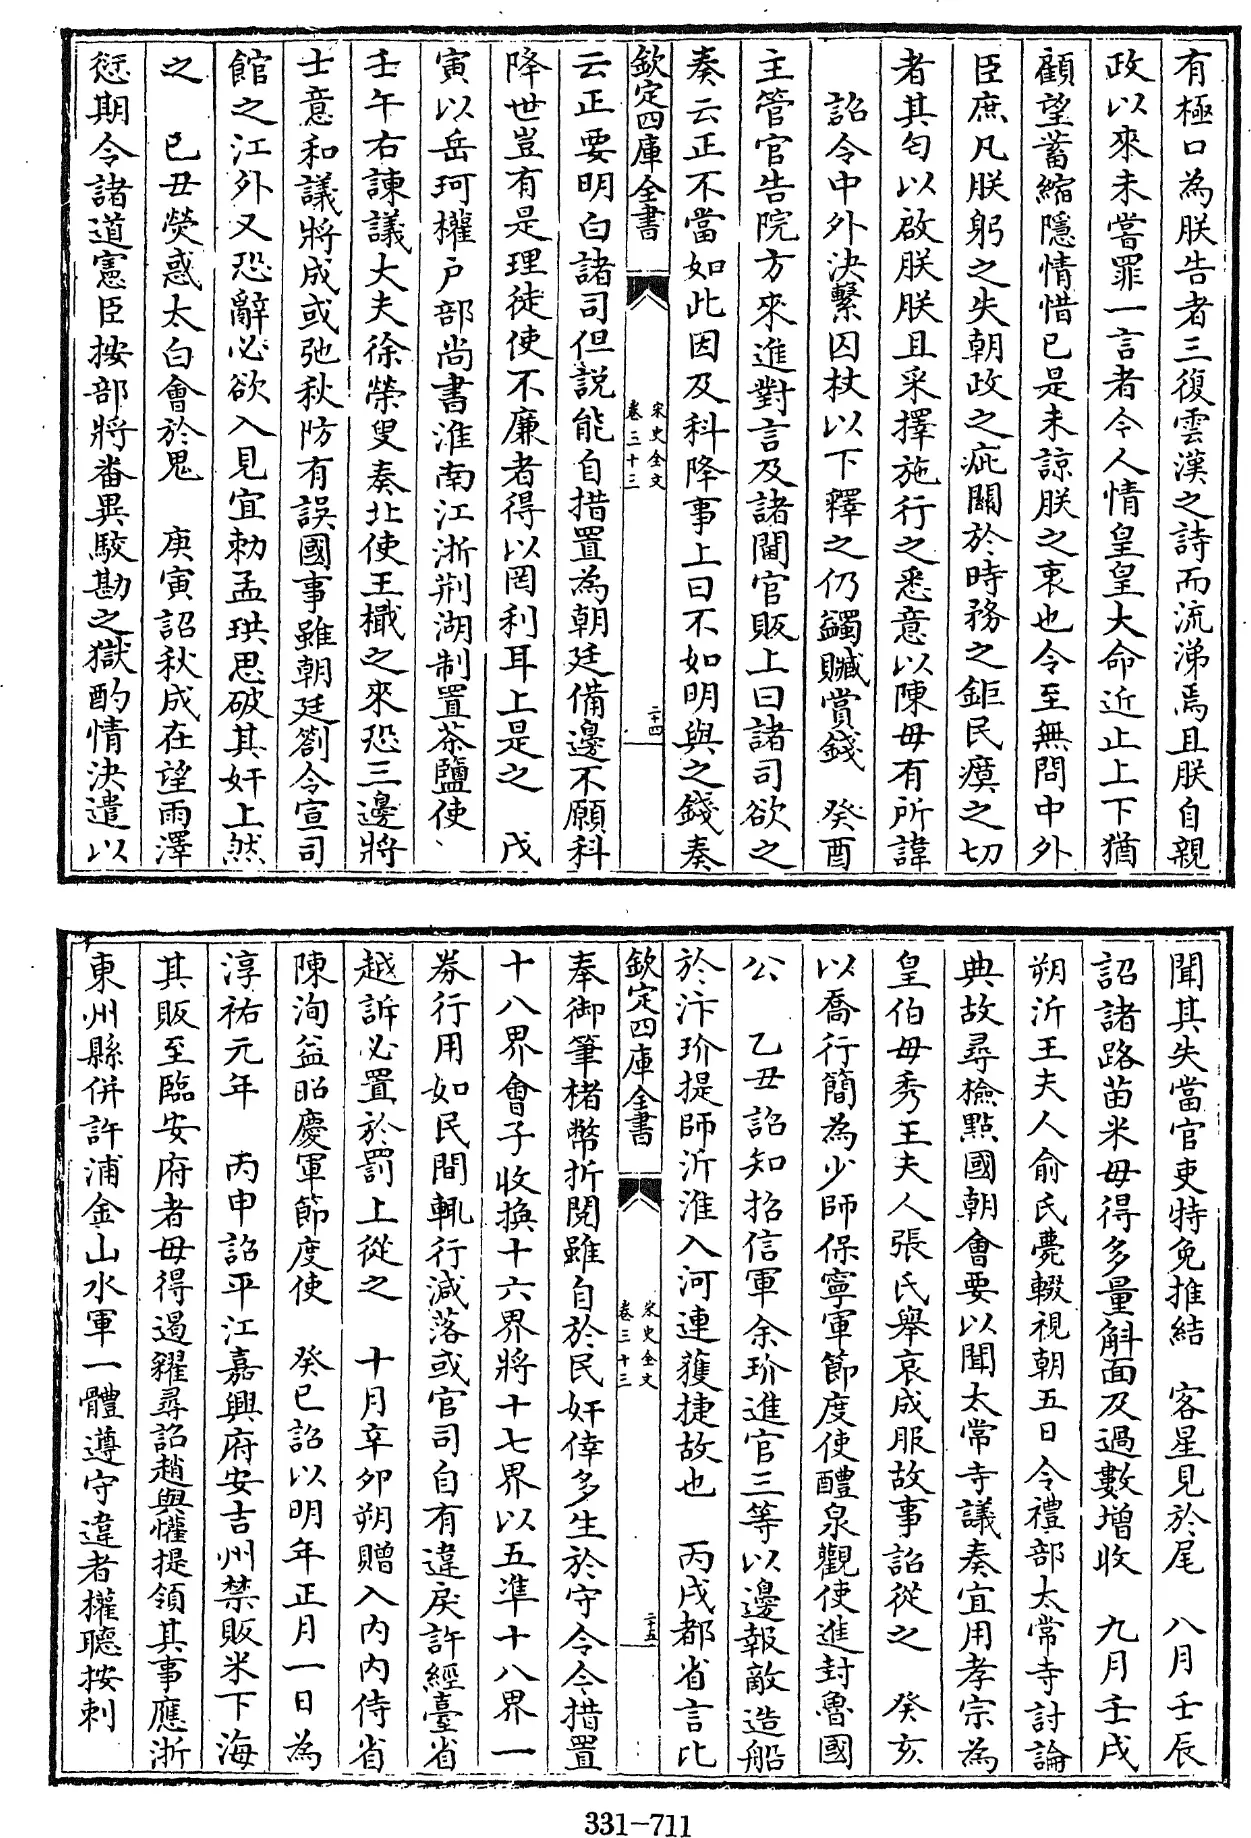 有極口為朕告者三復雲漢之詩而流涕焉且朕自親
政以來未嘗罪一言者令人情皇皇大命近止上下猶
顧望蓄縮隱情惜已是未諒朕之衷也令至無問中外
臣庶凡朕躬之失朝政之疵關於時務之鉅民瘼之切
者其匄以啟朕朕且采擇施行之悉意以陳毋有所諱
詔令中外決繫囚杖以下釋之仍蠲贓賞錢　癸酉
主管官告院方來進對言及諸閫官販上曰諸司欲之
奏云正不當如此因及科降事上曰不如明與之錢奏
欽定四庫全書
宋史全文
卷三十三
二十四
云正要明白諸司但說能自措置為朝廷備邊不願科
降世豈有是理徒使不廉者得以罔利耳上是之　戊
寅以岳珂權戶部尚書淮南江浙荆湖制置茶鹽使
壬午右諫議大夫徐榮叟奏北使王檝之來恐三邊將
士意和議將成或弛秋防有誤國事雖朝廷劄令宣司
館之江外又恐辭必欲入見宜勅孟珙思破其奸上然
之　已丑熒惑太白會於鬼　庚寅詔秋成在望雨澤
愆期令諸道憲臣按部將番異駮勘之獄酌情決遣以
聞其失當官吏特免推結　客星見於尾　八月壬辰
詔諸路苗米毋得多量斛面及過數增收　九月壬戌
朔沂王夫人俞氏薨輟視朝五日令禮部太常寺討論
典故尋檢點國朝會要以聞太常寺議奏宜用孝宗為
皇伯母秀王夫人張氏舉哀成服故事詔從之　癸亥
以喬行簡為少師保寧軍節度使醴泉觀使進封魯國
公　乙丑詔知招信軍余玠進官三等以邊報敵造船
於汴玠提師泝淮入河連獲捷故也　丙戌都省言比
欽定四庫全書
宋史全文
卷三十三
二十五
奉御筆楮幣折閱雖自於民奸倖多生於守令令措置
十八界會子收換十六界將十七界以五準十八界一
券行用如民間輒行減落或官司自有違戾許經臺省
越訴必置於罰上從之　十月辛卯朔贈入内内侍省
陳洵益昭慶軍節度使　癸巳詔以明年正月一日為
淳祐元年　丙申詔平江嘉興府安吉州禁販米下海
其販至臨安府者毋得遏糴尋詔趙與懽提領其事應浙
東州縣併許浦金山水軍一體遵守違者權聽按刺